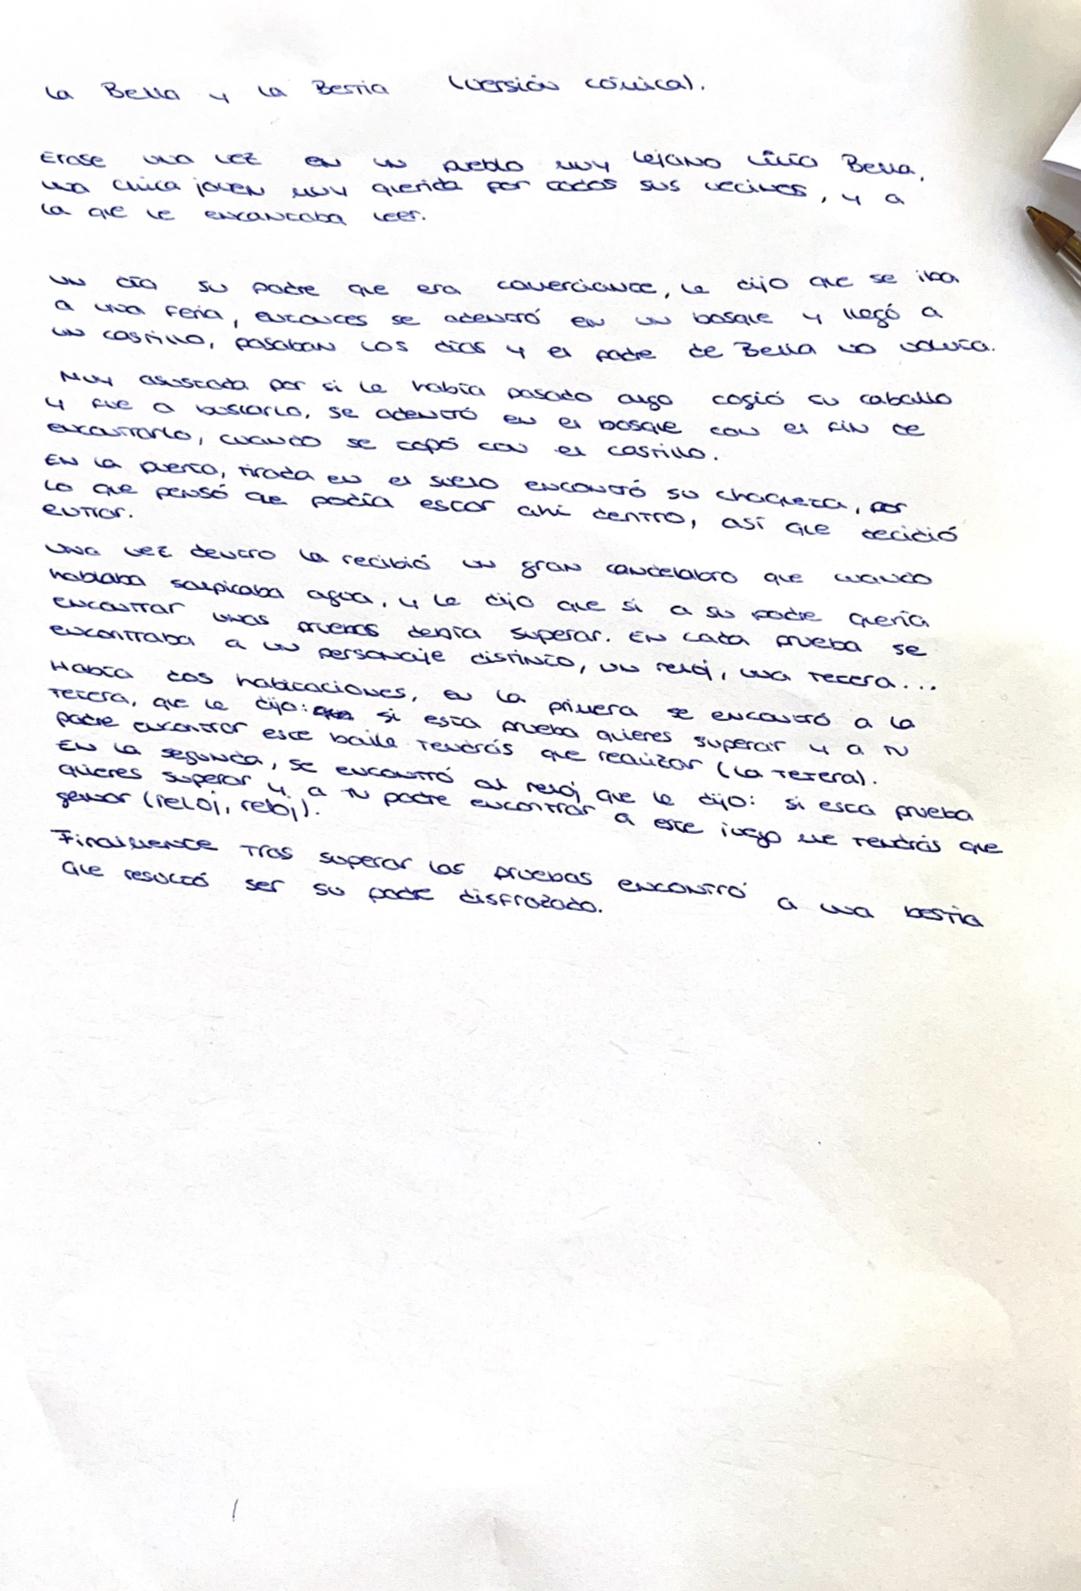 La Bella y la Bestia (versión cómica).
Erase una vez en un pueblo muy lejano vivío Bella,
una chica joven muy querida por todos sus vecinos, y a
la que le encantaba leer.
Un día su padre que era comerciante, le dijo que se iba
a una feria, entonces se adentró en un bosque y llegó a
un castillo, pasaban los días y el padre de Bella no volvía.
Muy asustada por si le había pasado algo cogió su caballo
y fue a buscarlo, se adentró en el bosque con el fin de
encontrarlo, cuando se topó con el castillo.
En la puerta, tirada en el suelo encontró su chaqueta, por
lo que pensó que podía estar ahí dentro, así que decidió
entrar.
Una vez dentro la recibió un gran candelabro que cuando
hablaba salpicaba agua, y le dijo que si a su padre quería
encontrar unas pruebas debía superar. En cada prueba se
encontraba a un personaje distinto, un reloj, una tetera...
Había dos habitaciones, en la primera se encontró a la
tetera, que le dijo: si esta prueba quieres superar y a tu
padre encontrar este baile tendrás que realizar (la tetera).
En la segunda, se encontró al reloj que le dijo: si esta prueba
quieres superar y a tu padre encontrar a este juego me tendrás que
ganar (reloj, reloj).
Finalmente tras superar las pruebas encontró a una bestia
que resultó ser su padre disfrazado.